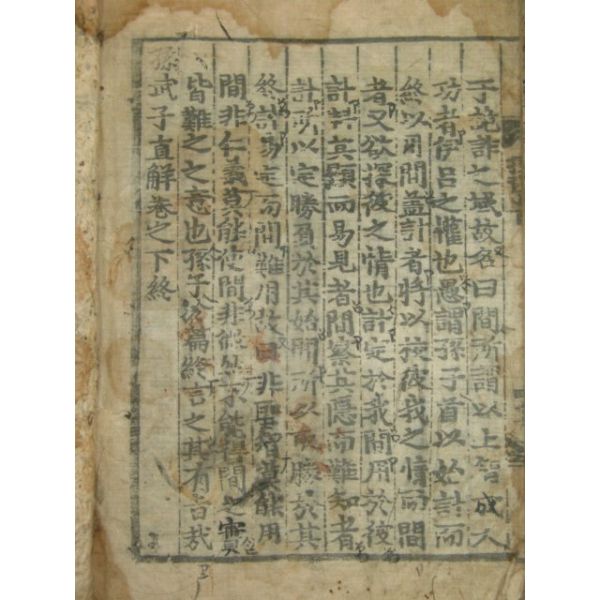 于詭詐之域故名曰間所謂以上智成大
功者伊呂之權也愚謂孫子首以始計而
終以用間蓋計者將以挍彼我之情而間
者又欲探彼之情也計定於我間用於彼
計料其顯而易見者間察其隱而難知者
計所以定勝負於其始間所以取勝於其
終計易定而間難用故曰非聖智莫能用
間非仁義莫能使間非微妙不能得間之實
皆難之之意也孫子於篇終言之其有旨哉
孫武子直解卷之下終